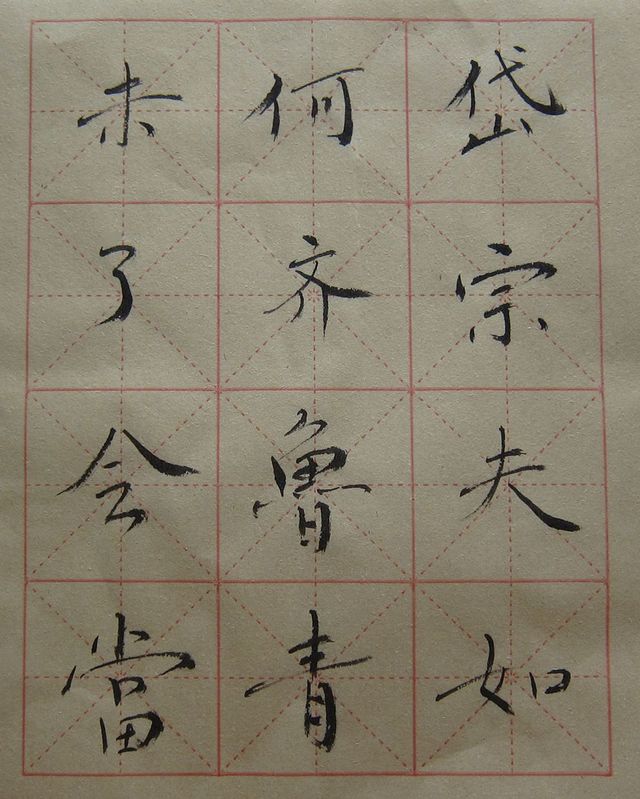 岱宗夫如
何齐魯青
未了会當